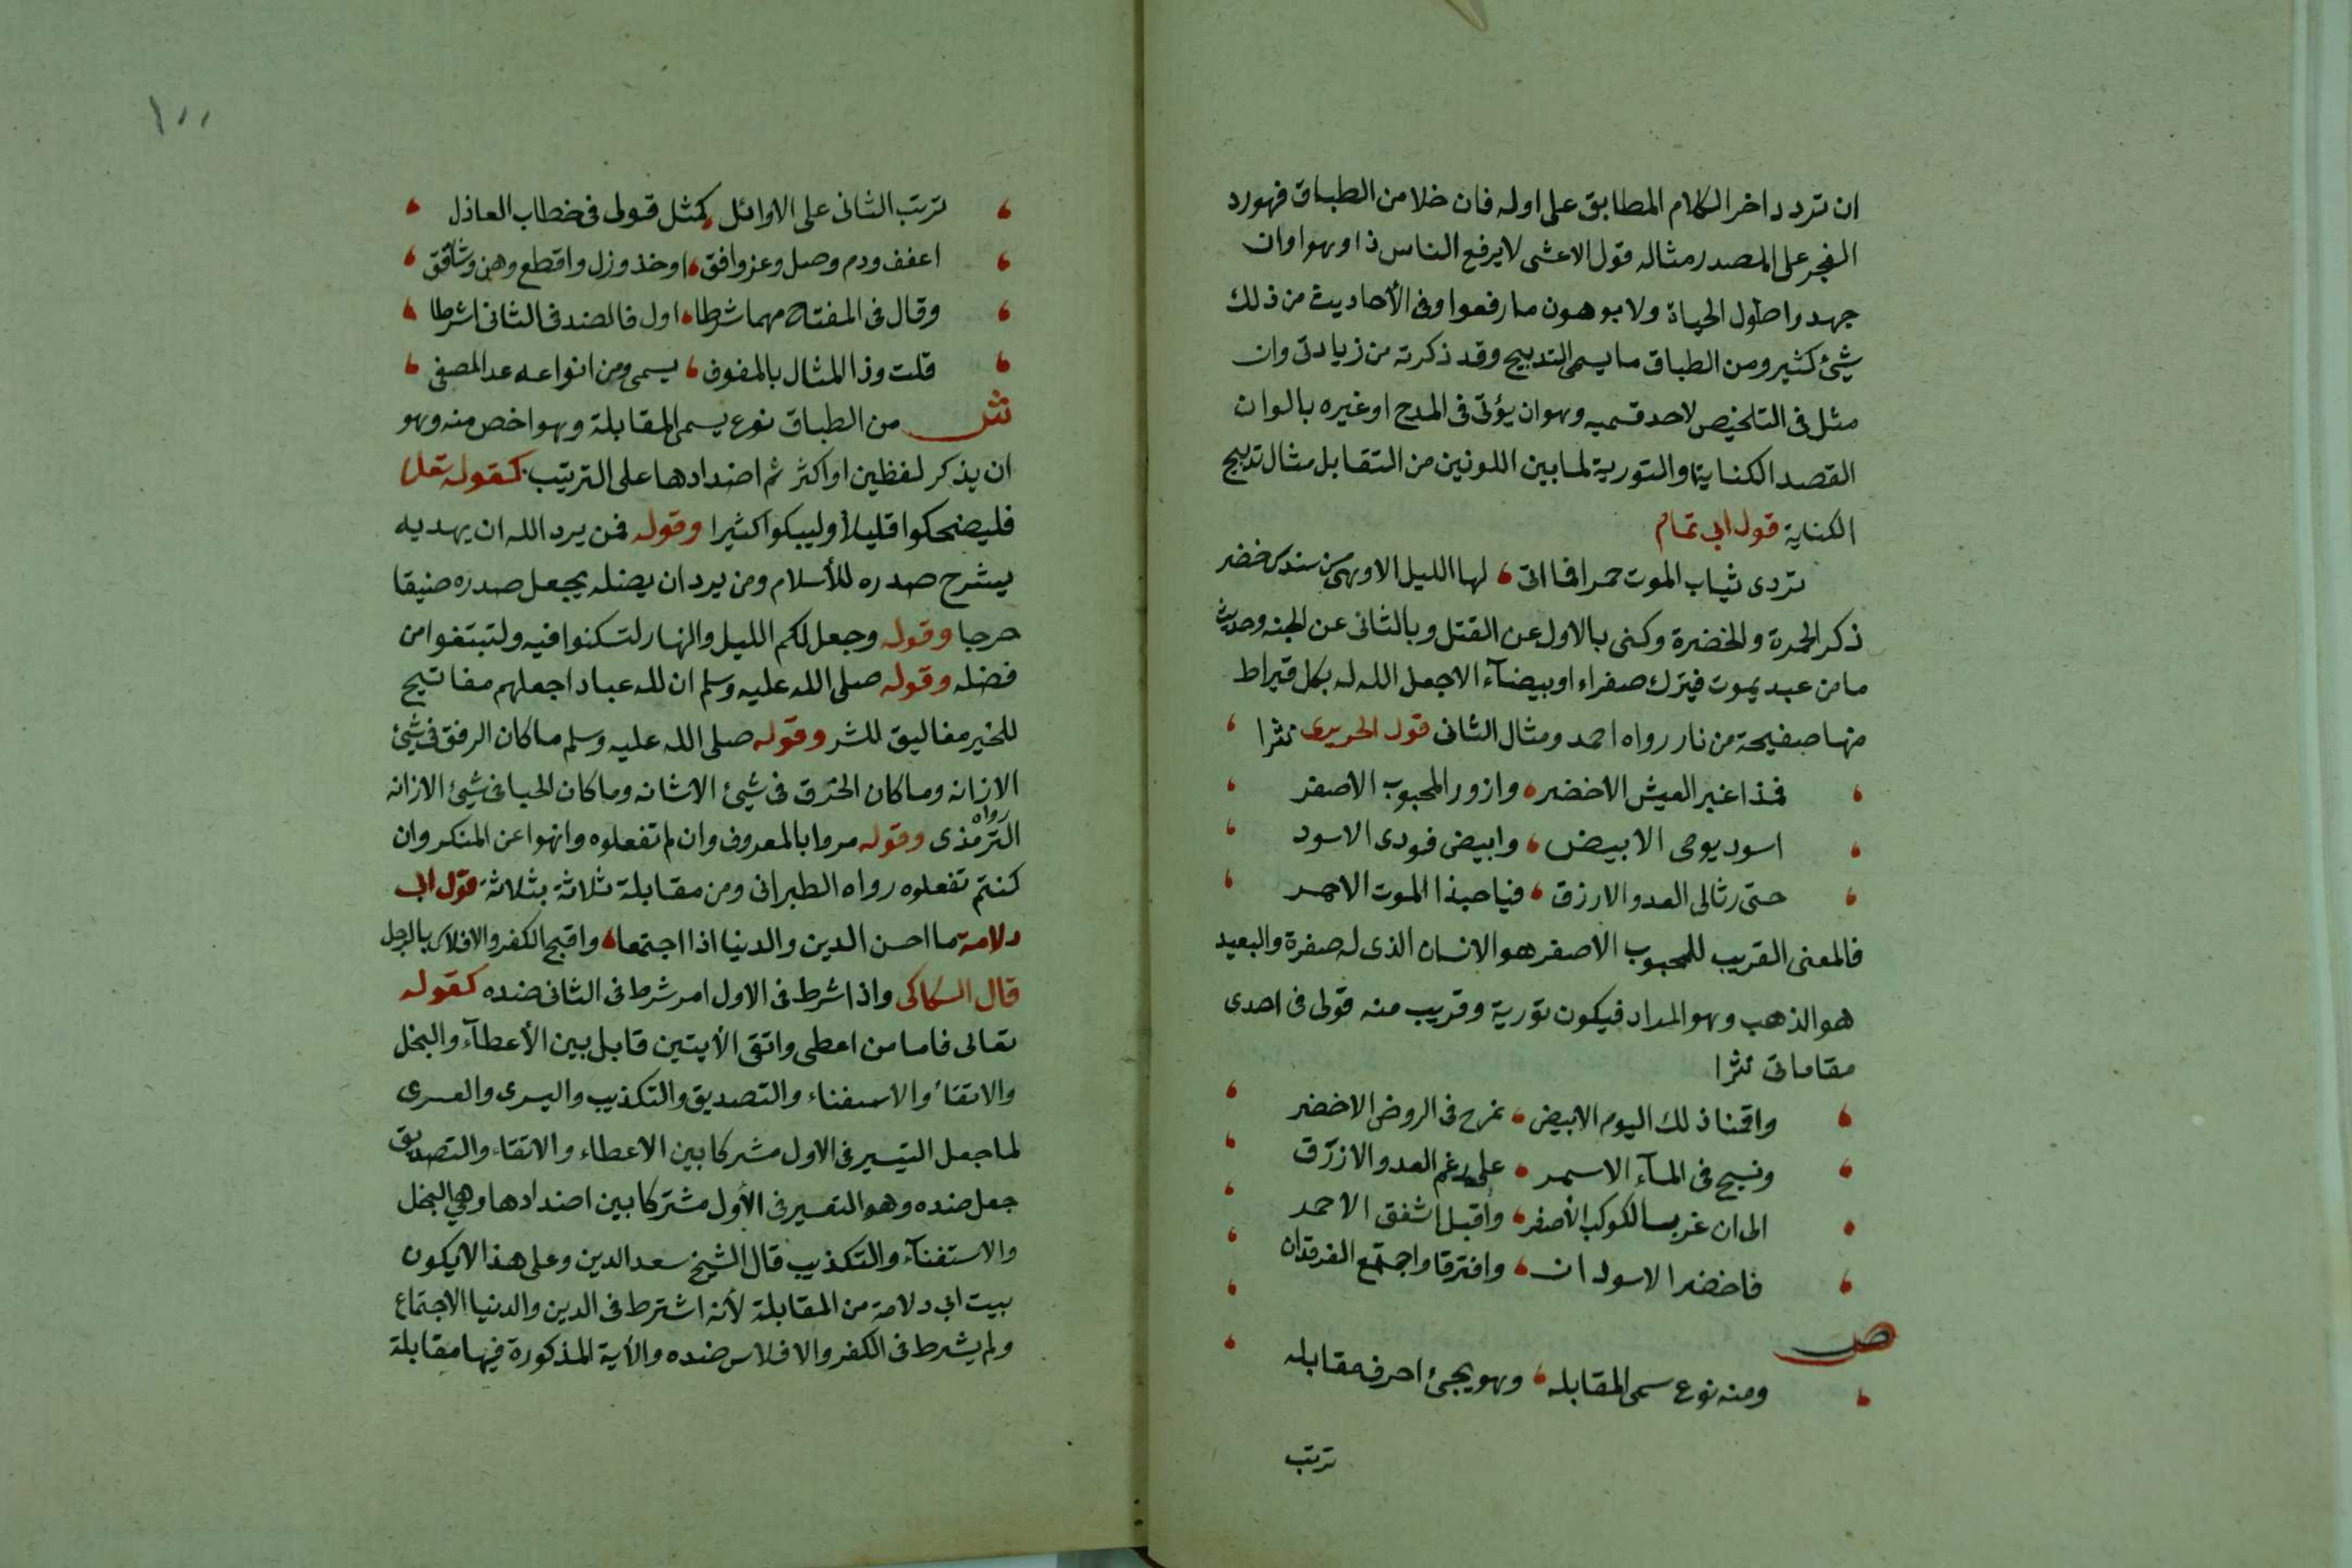 ان تردد اخر الكلام المطابق على اوله فان خلا من الطباق فهو رد
العجز على المصدر مثاله قول الاعشى لا يرفع الناس ذا وهوا وان
جهدوا طول الحياة ولا يوهون ما رفعوا وفى الأحاديث من ذلك
شيئ كثير ومن الطباق ما يسمى التدبيج وقد ذكرته من زيادتى وان
مثل فى التلخيص لاحد قسميه وهو ان يؤتى فى المدح او غيره بالوان
القصد الكناية او التورية لما بين اللونين من التقابل مثال تدبيج
الكناية قول ابى تمام
تردى ثياب الموت حمرا فما اتى ، لها الليل الا وهى من سندس خضر
ذكر الحمرة والخضرة وكنى بالاول عن القتل وبالثانى عن الجنه وحديث
ما من عبد يموت فيترك صفراء او بيضآء الا جعل الله له بكل قيراط
منها صفيحة من نار رواه احمد ومثال الثانى قول الحريرى نثرا
فمذ اغبر العيش الاخضر ، وازور المحبوب الاصفر
اسود يومى الابيض ، وابيض فودى الاسود
حتى رثا لى العدو الارزق ، فيا حبذا الموت الاحمر
فالمعنى القريب للمحبوب الاصفر هو الانسان الذى له صفرة والبعيد
هو الذهب وهو المراد فيكون تورية وقريب منه قولى فى احدى
مقاماتى نثرا
واقمنا ذلك اليوم الابيض ، نمرح فى الروض الاخضر
ونسبح فى المآء الاسمر ، على رغم العدو الازرق
الى ان غرب الكوكب الأصفر ، وأقبل الشفق الاحمر
فاخضر الاسودان ، وافترقا واجتمع الفرقدان
ص
ومنه نوع سمى المقابله ، وهو يجئ احرف مقابله
ترتب
١٠٠
ترتب الثانى على الاوائل ، كمثل قولى فى خطاب العاذل
اعفف ودم وصل وعز وافق ، او خذ وزل واقطع وهن وشاقق
وقال فى المفتاح مهما شرطا ، اول فالضد فى الثانى اشرطا
قلت وذا المثال بالمفوف ، يسمى ومن انواعه عد المصفى
ش من الطباق نوع يسمى المقابلة وهو اخص منه وهو
ان يذكر لفظين او اكثر ثم اضدادها على الترتيب كقوله تعلى
فليضحكوا قليلاً وليبكوا كثيرا وقوله فمن يرد الله ان يهديه
يشرح صدره للأسلام ومن يرد ان يضله يجعل صدره ضيقا
حرجا وقوله وجعل لكم الليل والنهار لتسكنوا فيه ولتبتغوا من
فضله وقوله صلى الله عليه وسلم ان لله عبادا جعلهم مفاتيح
للخير مغاليق للشر وقوله صلى الله عليه وسلم ما كان الرفق فى شيئ
الا زانه وما كان الخرق فى شيئ الا شانه وما كان الحيا فى شيئ الا زانه
رواه
الترمذى وقوله مروا بالمعروف وان لم تفعلوه وانهوا عن المنكر وان
كنتم تفعلوه رواه الطبرانى ومن مقابلة ثلاثة بثلاثة قول ابى
دلامة ما احسن الدين والدنيا اذا اجتمعا ، واقبح الكفر والافلاس بالرجل
قال السكاكى واذا شرط فى الاول امر شرط فى الثانى ضده كقوله
تعالى فاما من اعطى واتقى الأيتين قابل بين الأعطآء والبخل
والاتقاء والاستغناء والتصديق والتكذيب واليسرى والعسرى
لما جعل التيسير فى الاول مشتركا بين الاعطاء والاتقاء والتصديق
جعل ضده وهو التعسير فى الأول مشتركا بين اضدادها وهى البخل
والاستغنآء والتكذيب قال الشيخ سعد الدين وعلى هذا لا يكون
بيت ابى دلامة من المقابلة لأنه اشترط فى الدين والدنيا الاجتماع
ولم يشرط فى الكفر والافلاس ضده والأية المذكورة فيها مقابلة